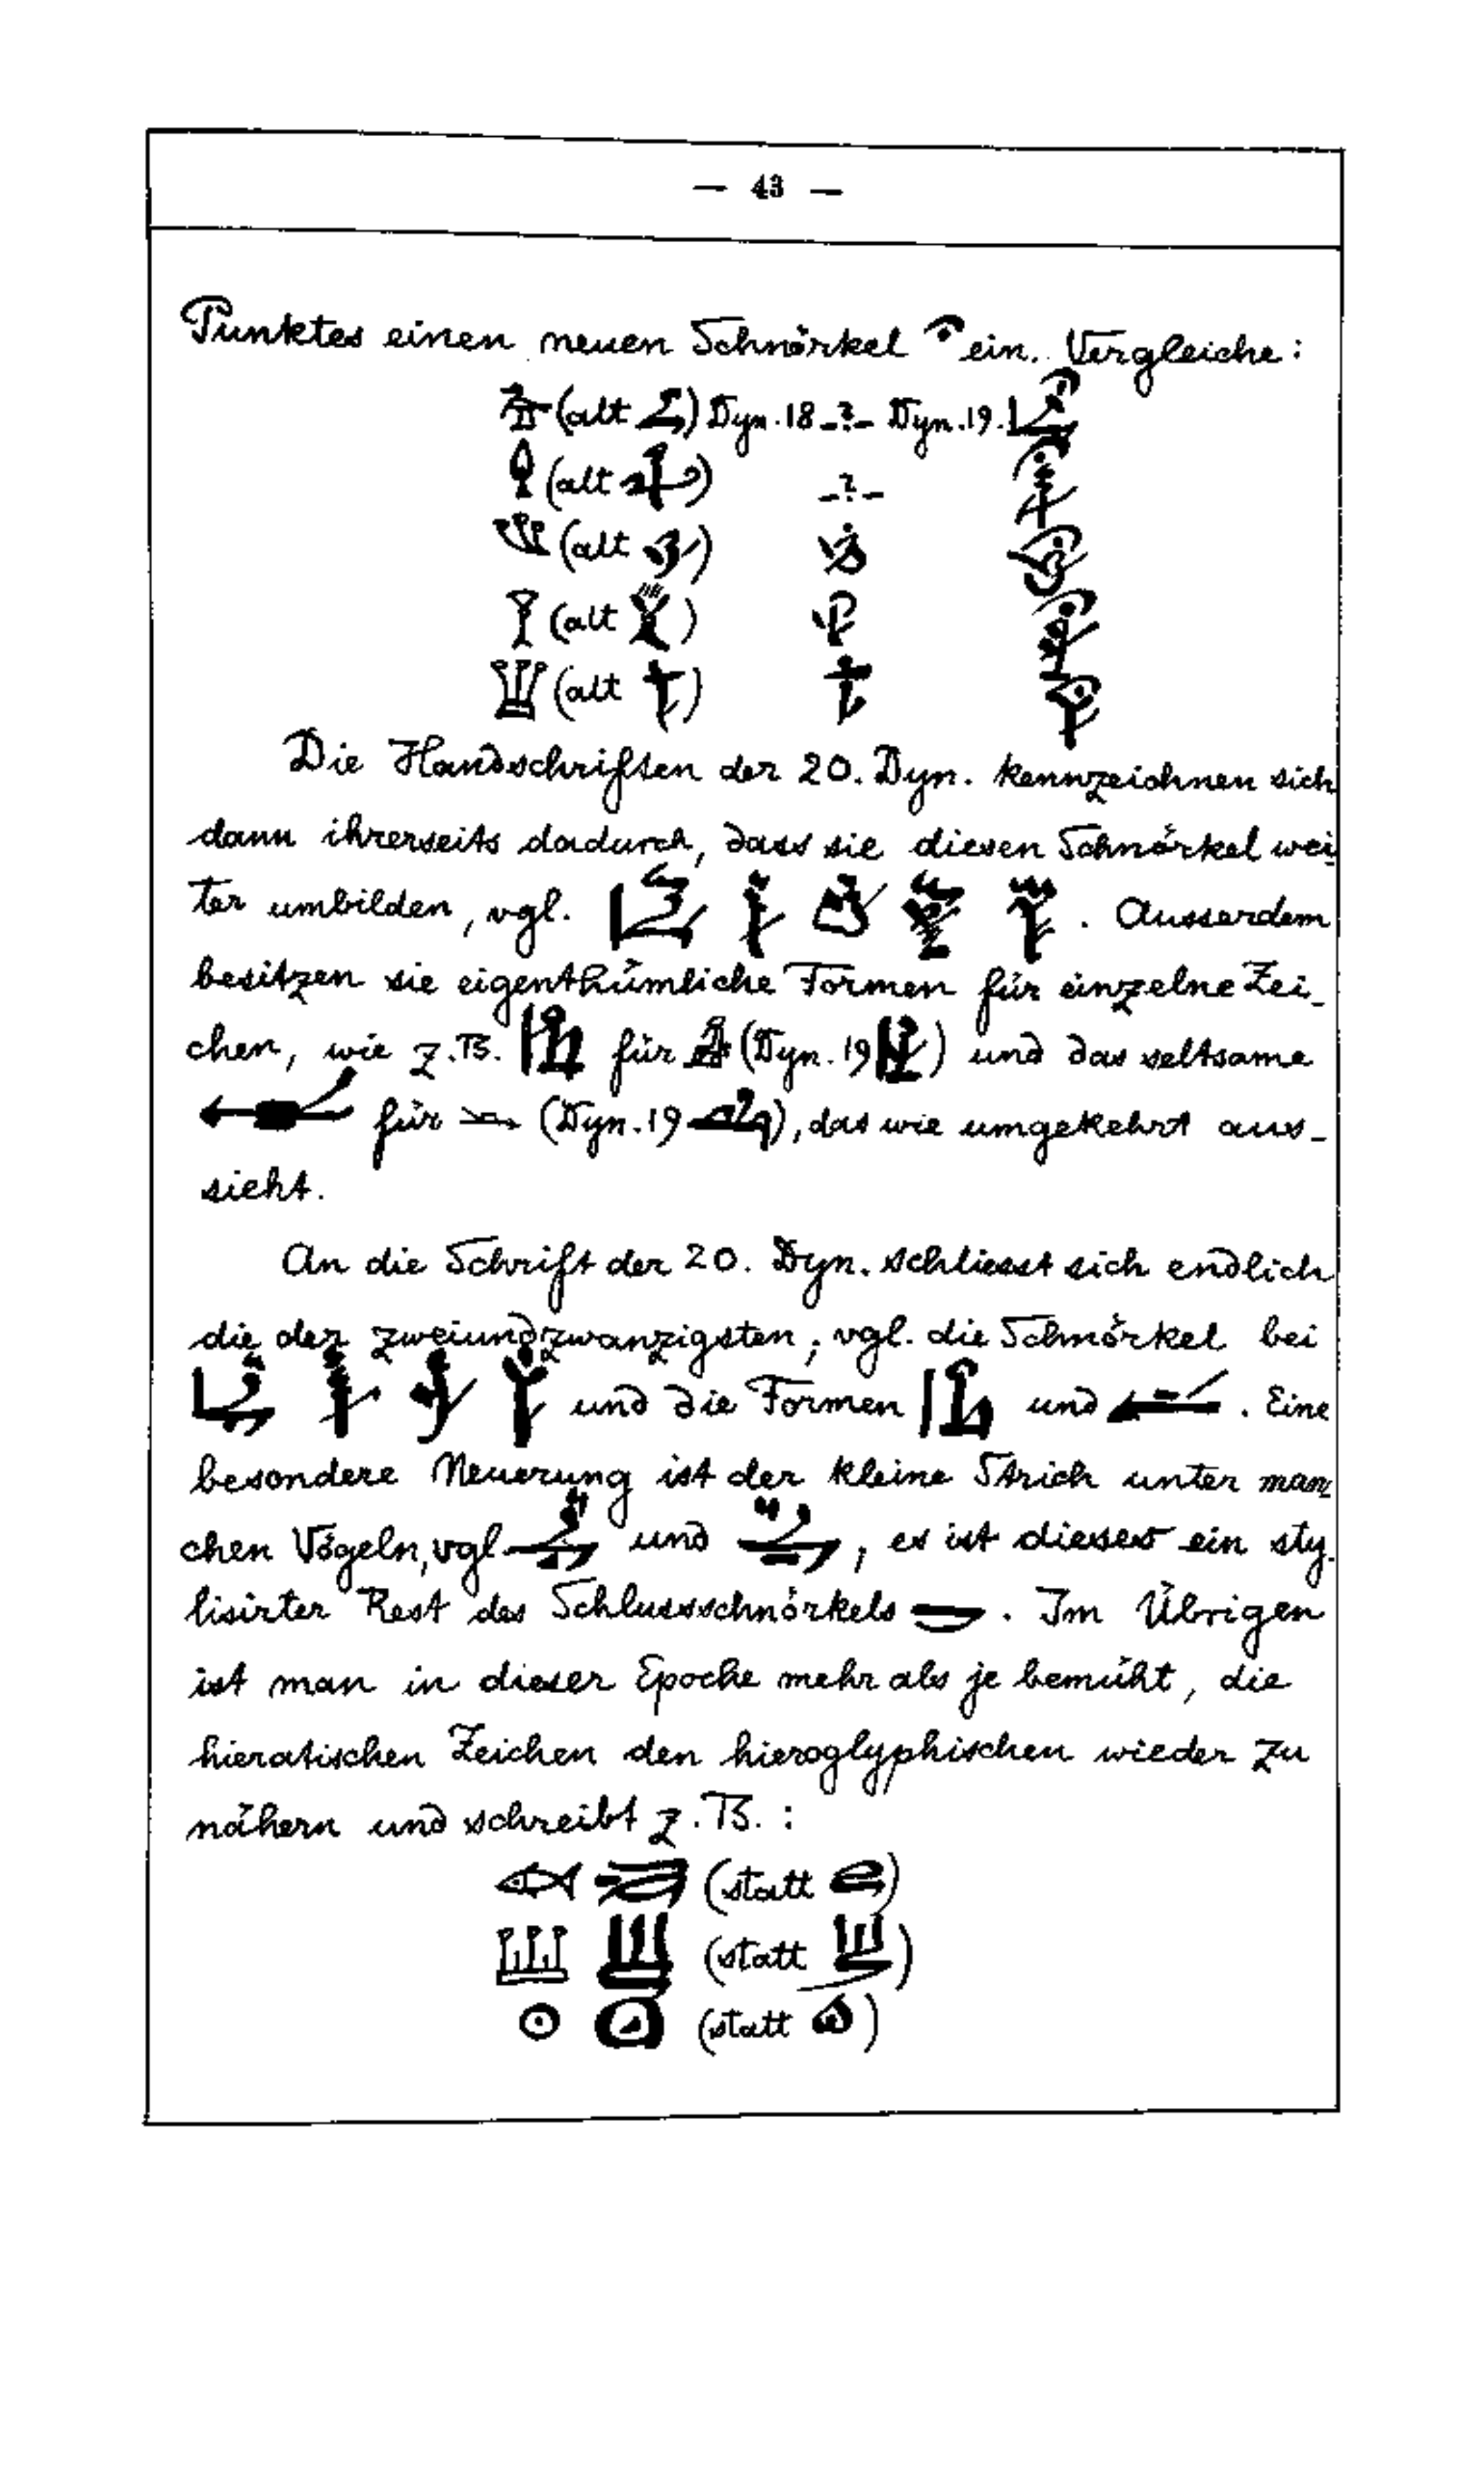 — 43 —
Punktes einen neuen Schnörkel ein. Vergleiche:
(alt ) Dyn. 18 -?- Dyn. 19.
(alt ) -?-
(alt )
(alt )
(alt )
Die Handschriften der 20. Dyn. kennzeichnen sich
dann ihrerseits dadurch, dass sie diesen Schnörkel wei-
ter umbilden, vgl. . Ausserdem
besitzen sie eigenthümliche Formen für einzelne Zei-
chen, wie z. B. für (Dyn. 19 ) und das seltsame
für (Dyn. 19 ), das wie umgekehrt aus-
sieht.
An die Schrift der 20. Dyn. schliesst sich endlich
die der zweiundzwanzigsten; vgl. die Schnörkel bei
und die Formen und . Eine
besondere Neuerung ist der kleine Strich unter man-
chen Vögeln, vgl. und ; es ist dieses ein sty-
lisirter Rest des Schlussschnörkels . Im Übrigen
ist man in dieser Epoche mehr als je bemüht, die
hieratischen Zeichen den hieroglyphischen wieder zu
nähern und schreibt z. B. :
(statt )
(statt )
(statt )